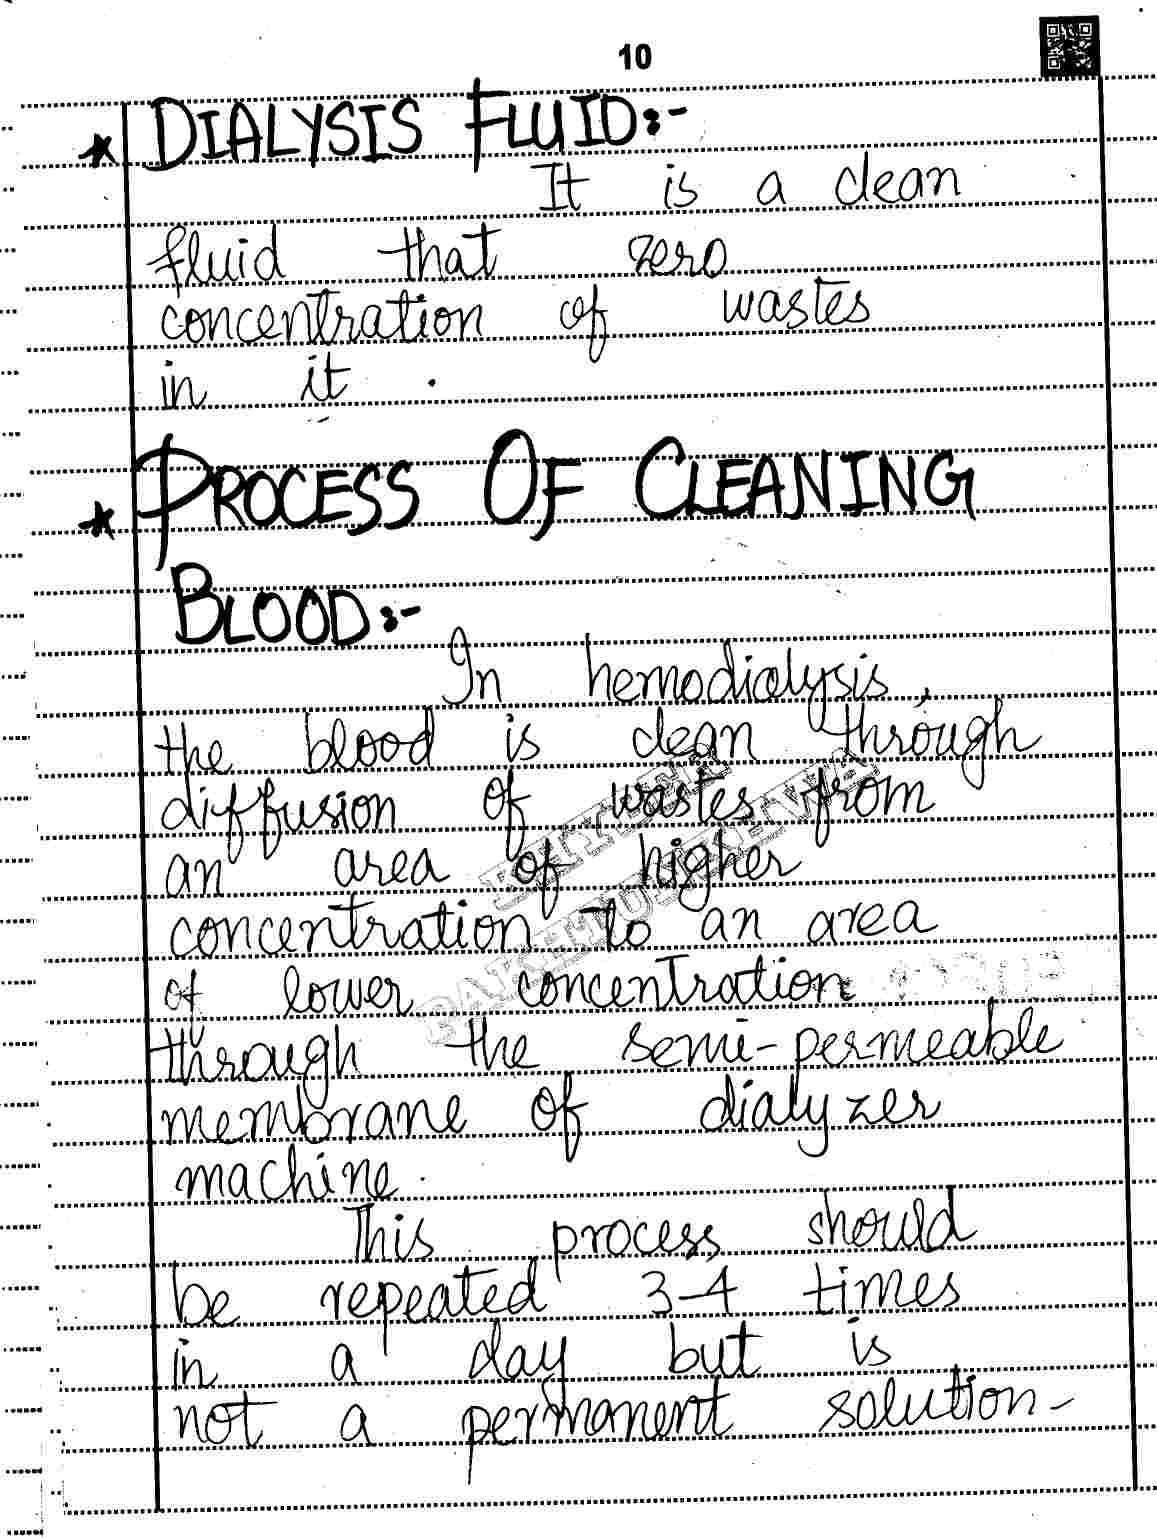 10
* DIALYSIS FLUID:-
It is a clean
fluid that zero
concentration of wastes
in it .
* PROCESS OF CLEANING
BLOOD:-
In hemodialysis,
the blood is clean through
diffusion of wastes from
an area of higher
concentration to an area
of lower concentration
through the semi-permeable
membrane of dialyzer
machine.
This process should
be repeated 3-4 times
in a day but is
not a permanent solution-
KHYBER
PAKHTUNKHWA